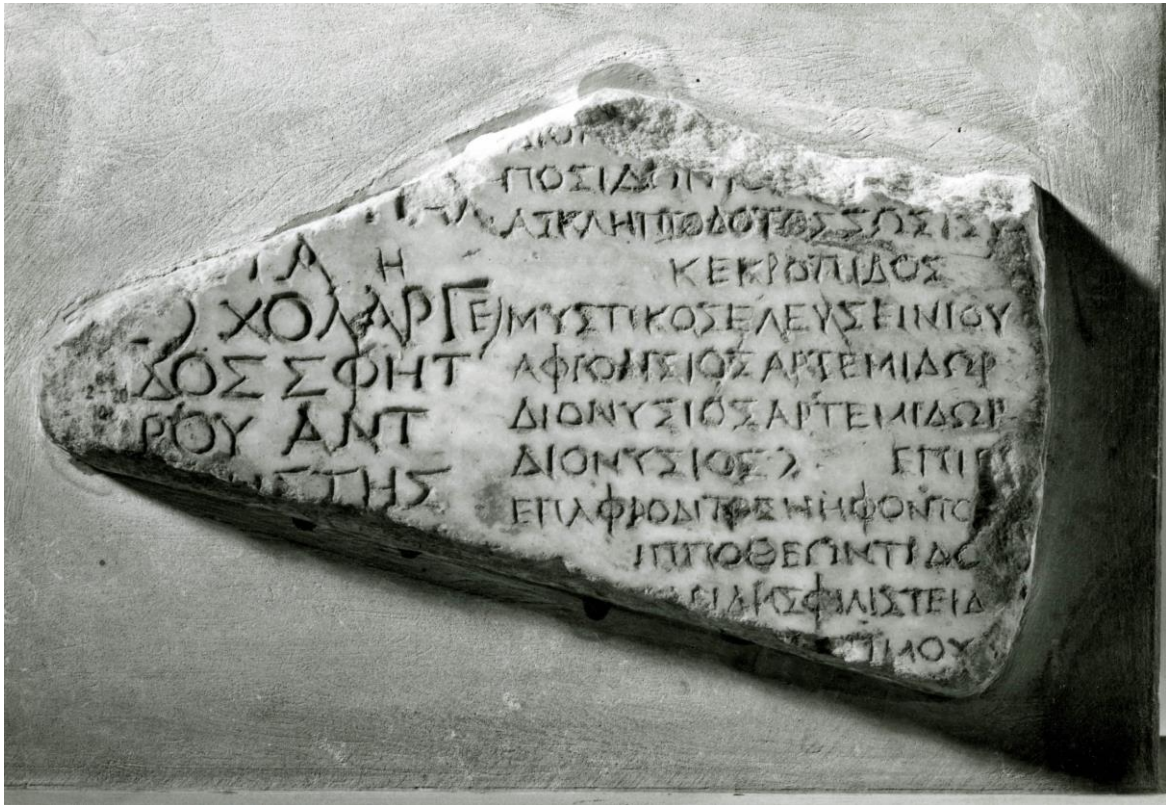 ΠΑΛ
ΙΑ Η
) ΧΟΛΑΡΓΕ)
ΔΟΣ ΣΦΗΤ
ΡΟΥ ΑΝΤ
ΣΤΗΣ
ΔΙΟΝ
ΠΟΣΙΔΩΝΙ
ΑΣΚΛΗΠΙΟΔΟΤΟΣ ΖΩΣΙΣ
ΚΕΚΡΟΠΙΔΟΣ
ΜΥΣΤΙΚΟΣ ΕΛΕΥΣΕΙΝΙΟΥ
ΑΦΡΟΔΙΣΙΟΣ ΑΡΤΕΜΙΔΩΡ
ΔΙΟΝΥΣΙΟΣ ΑΡΤΕΜΙΔΩΡ
ΔΙΟΝΥΣΙΟΣ) ΕΠΙ
ΕΠΑΦΡΟΔΙΤΟΣ ΞΗΝΟΦΩΝΤΟ
ΙΠΠΟΘΕΩΝΤΙΔΟ
ΕΙΔΗΣ ΦΙΛΙΣΤΕΙΔ
ΤΙΜΟΥ